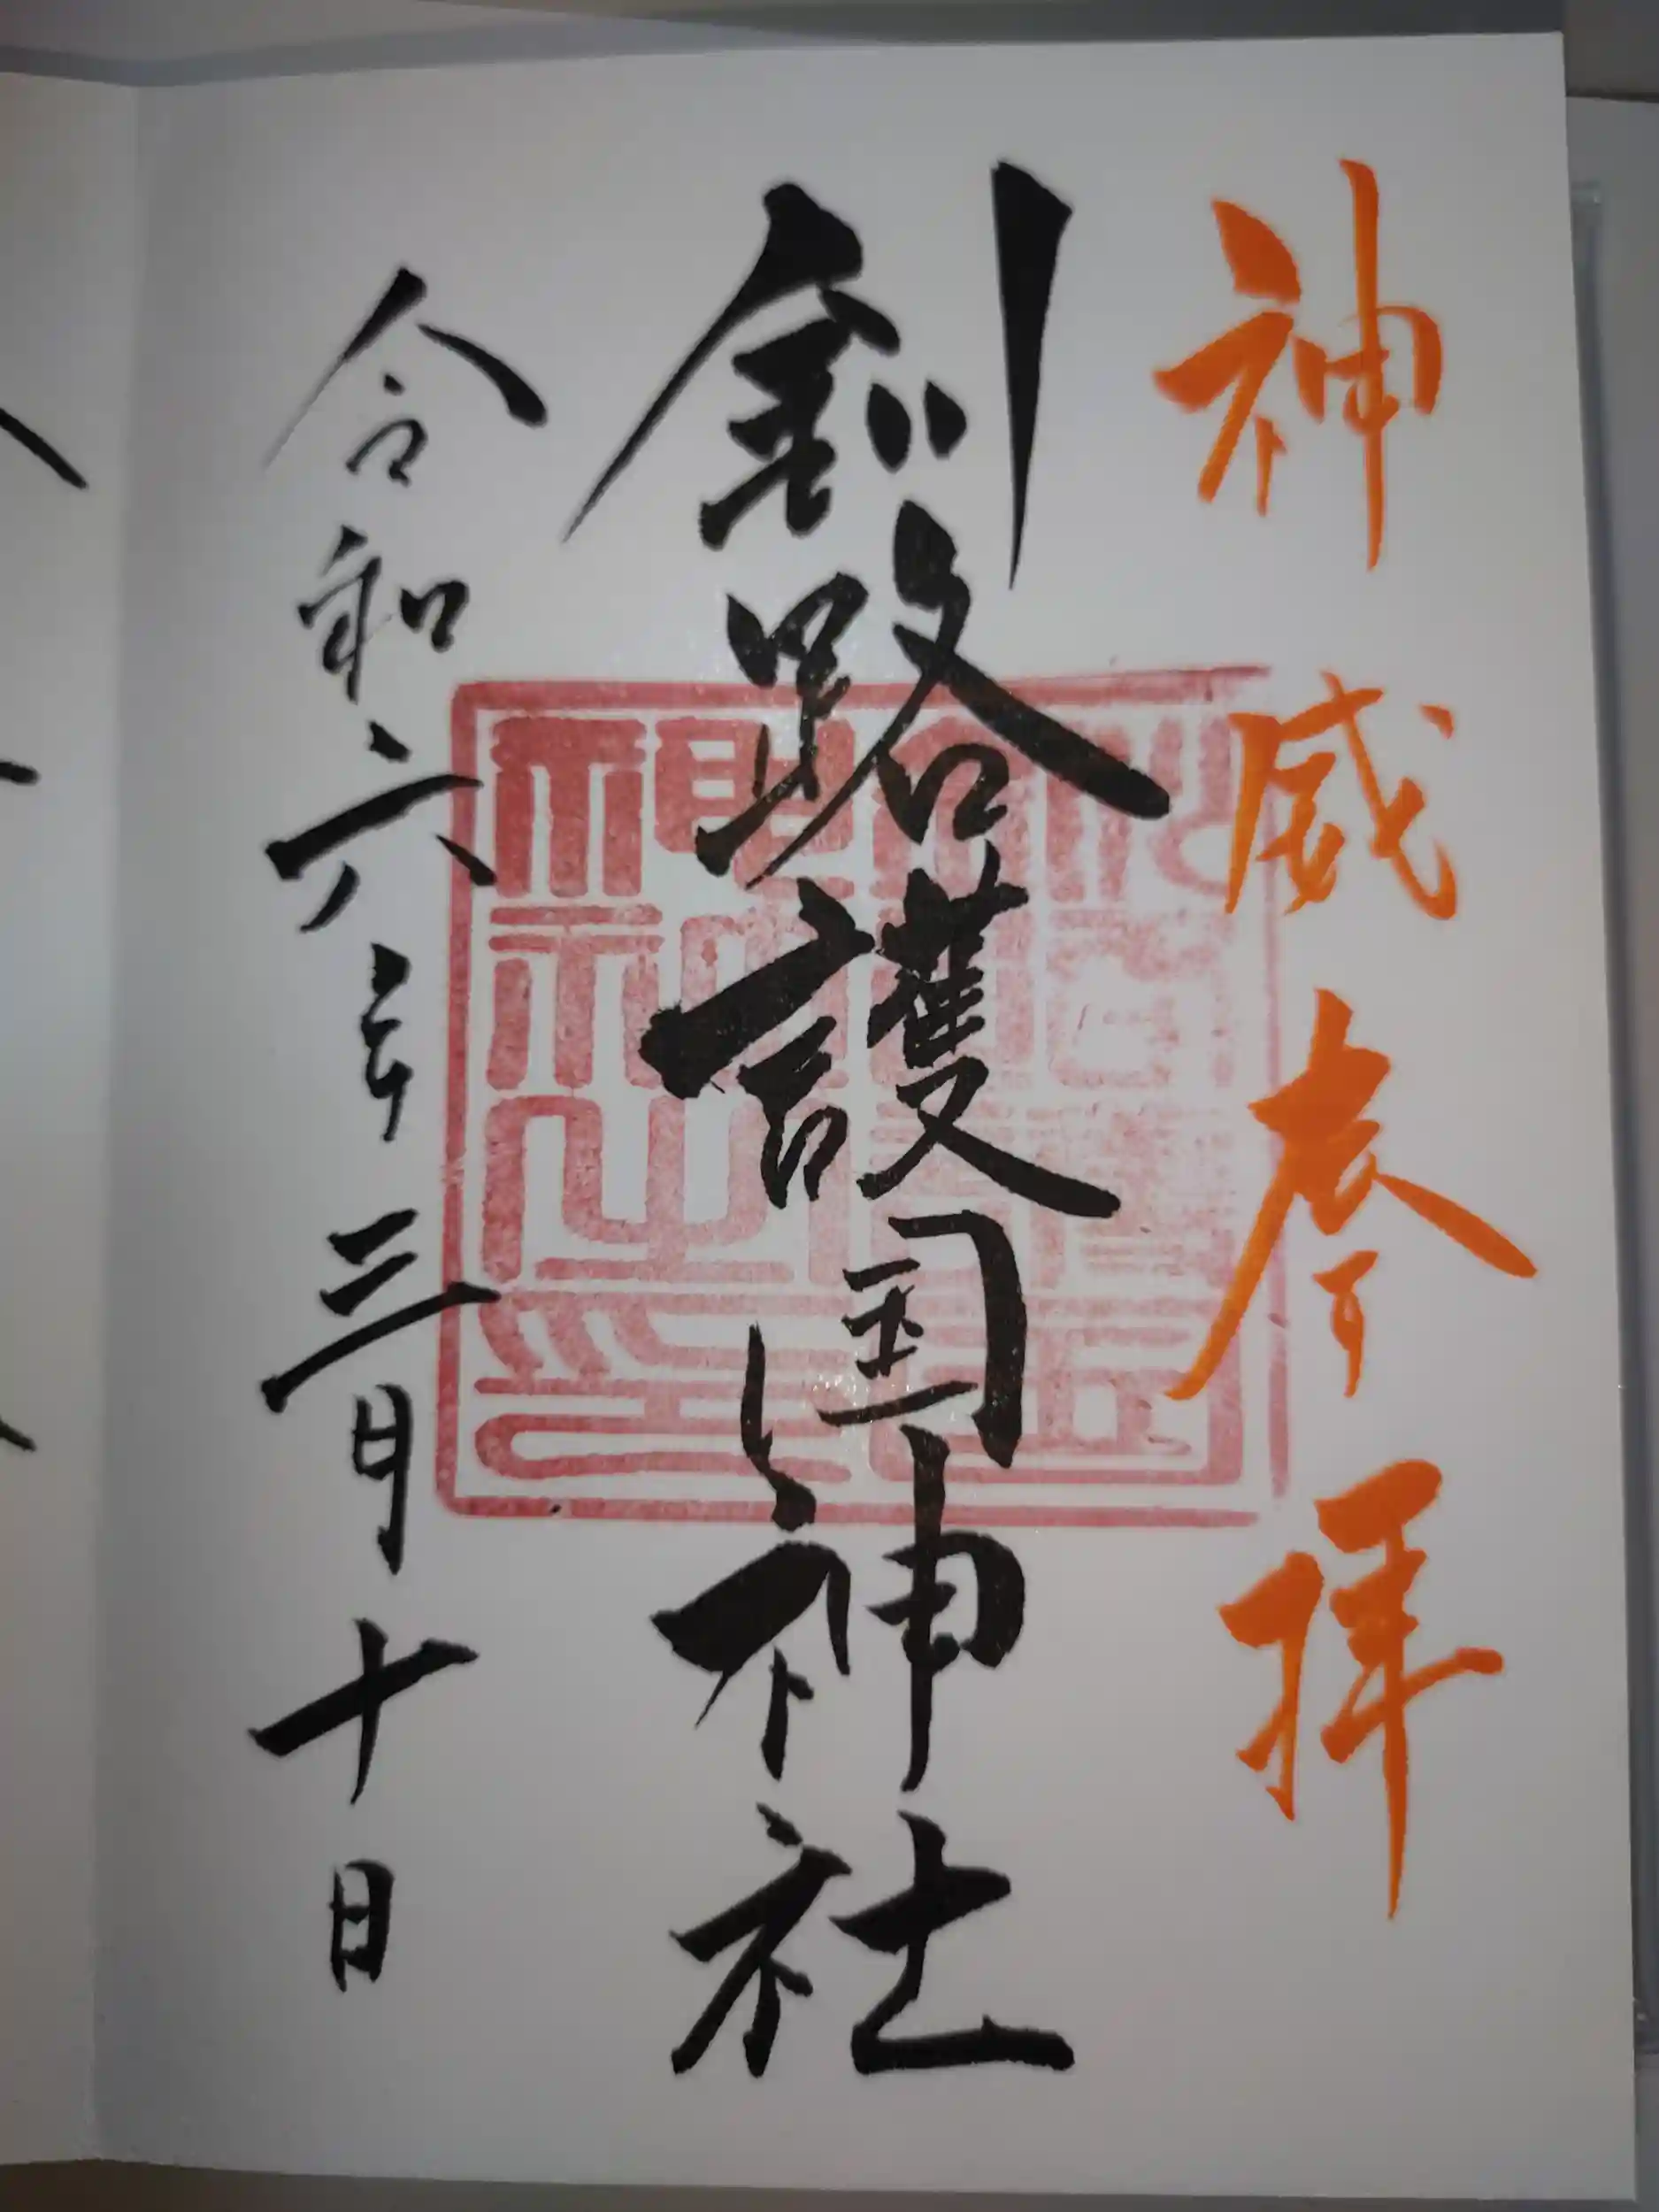 神威参拝
釧路護国神社
令和六年三月十日